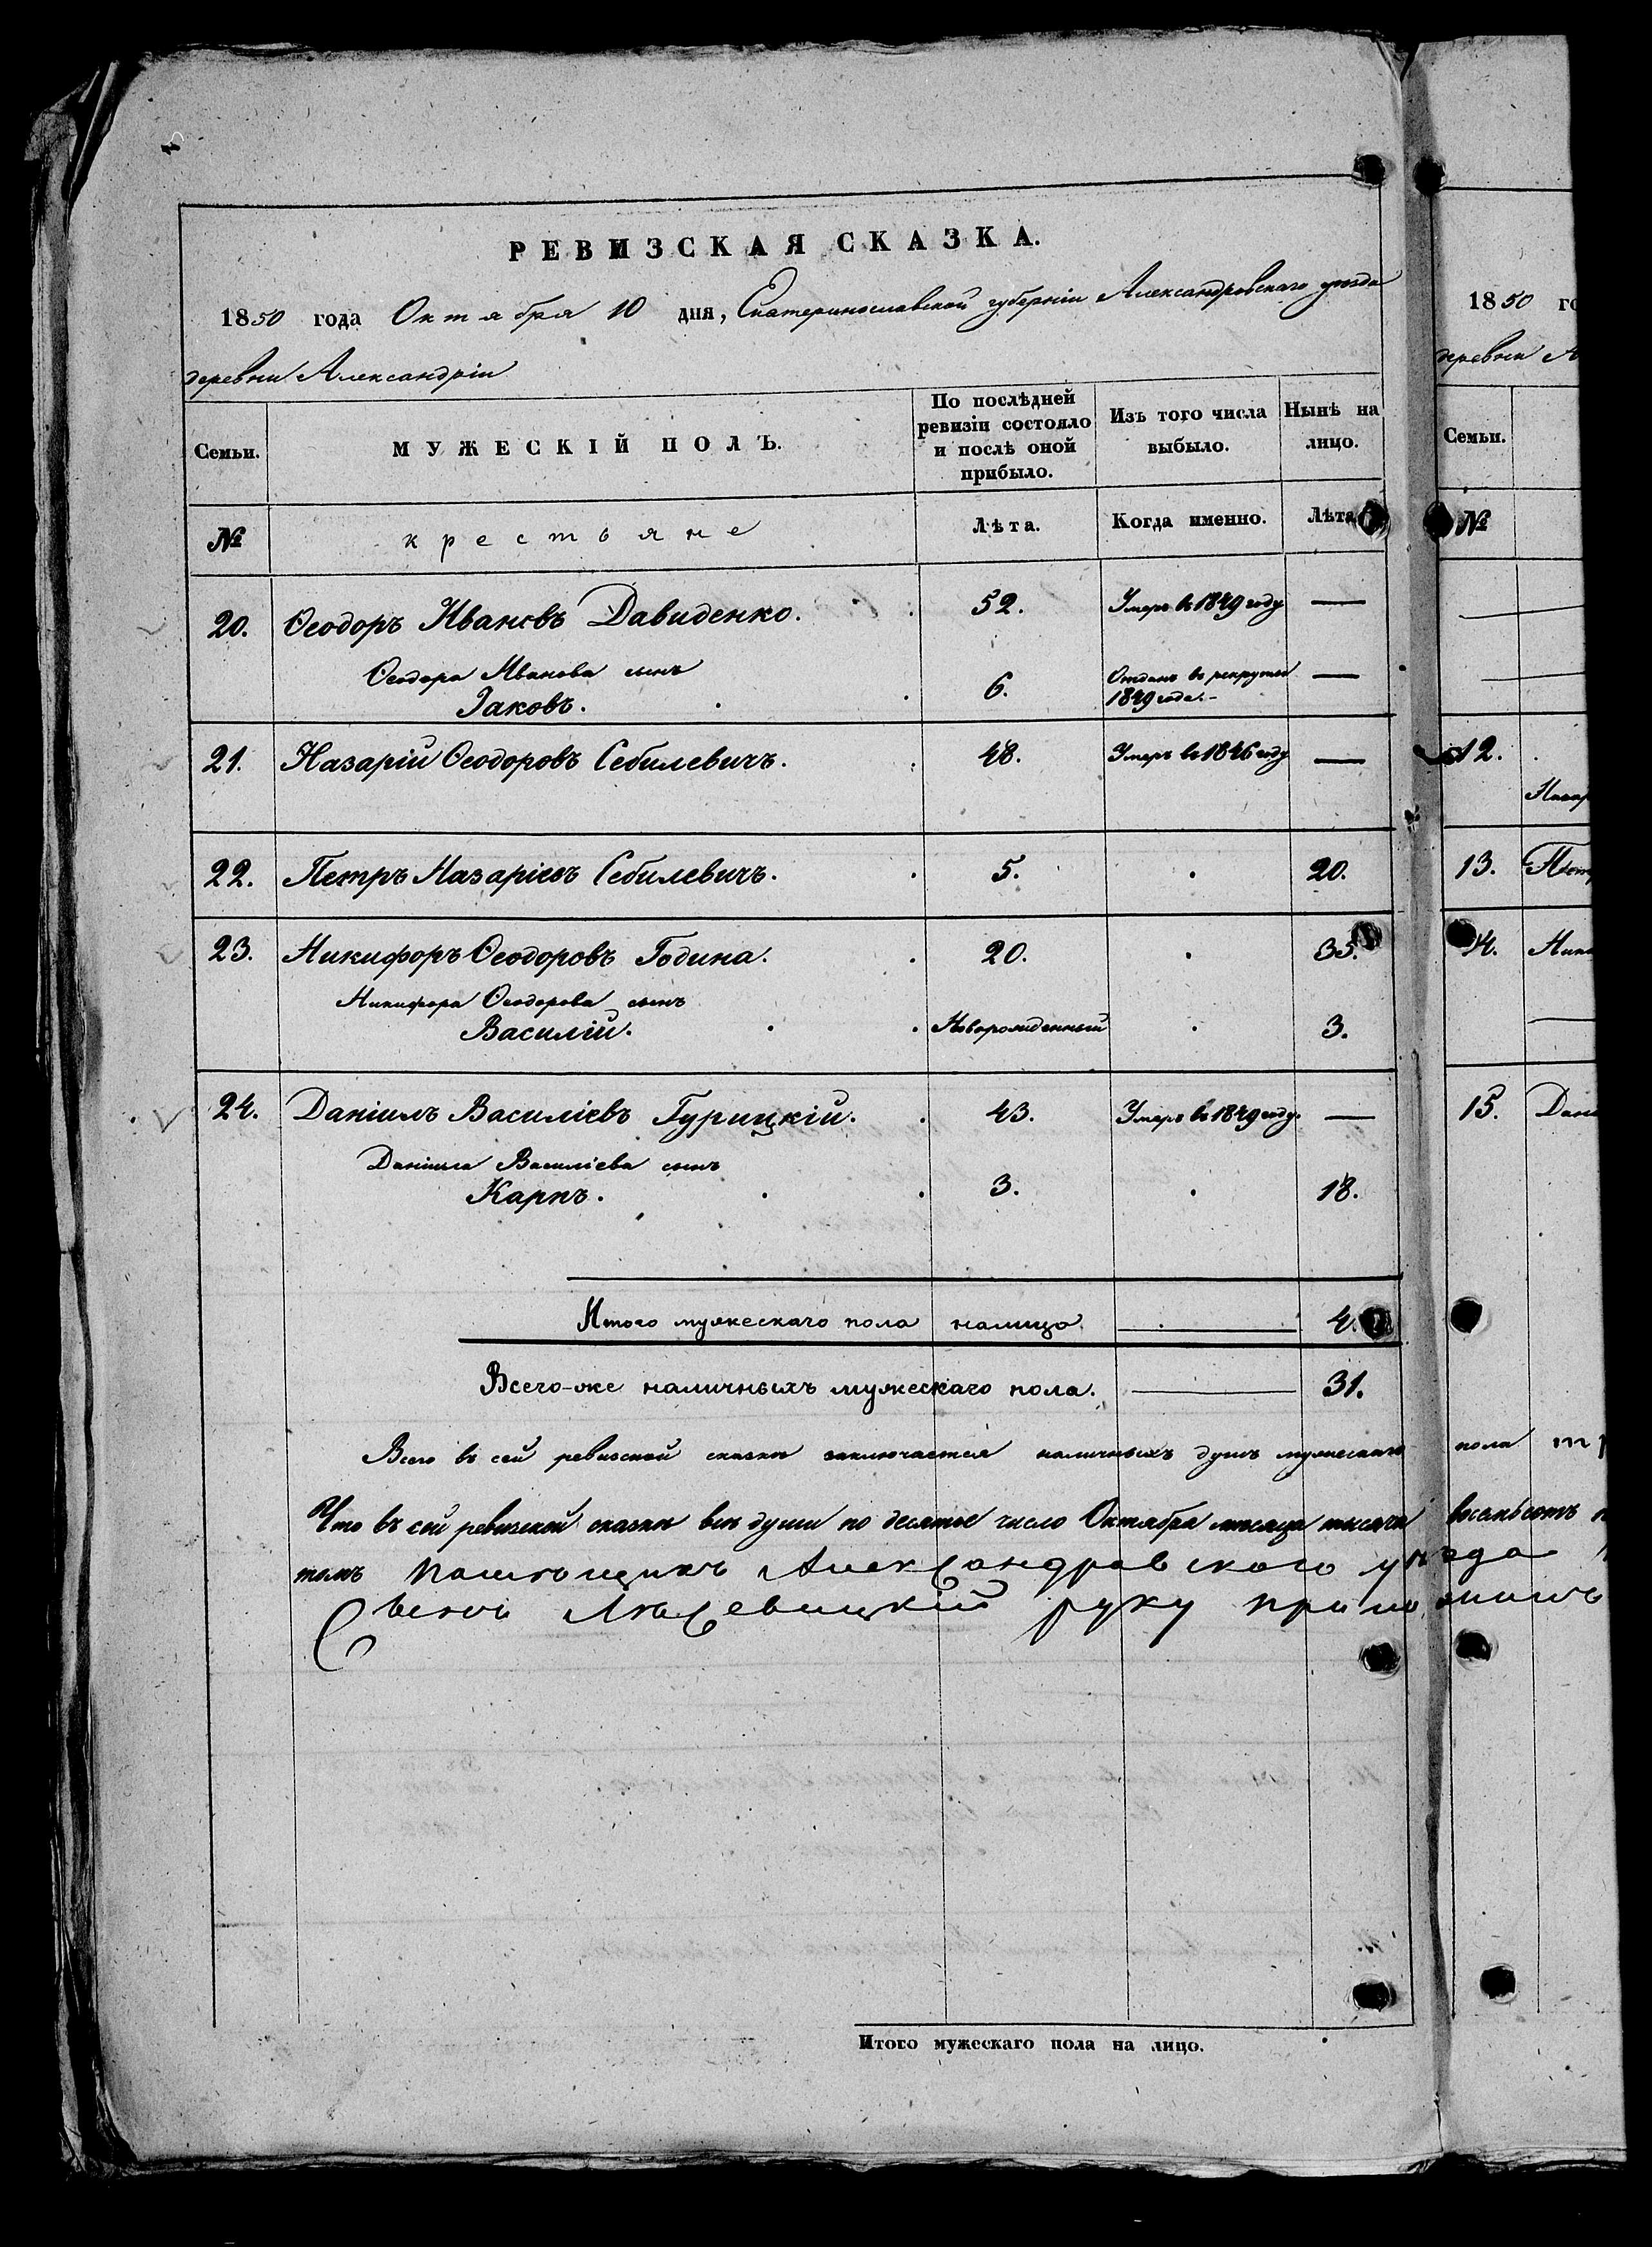 РЕВИЗСКАЯ СКАЗКА.
1850 года Октября 10 дня, Екатеринославской губерніи Александровскаго уѣзда
деревни Александріи
Семьи. МУЖЕСКІЙ ПОЛЪ. По послѣдней ревизіи состояло и послѣ оной прибыло. Изъ того числа выбыло. Нынѣ на лицо.
№ крестьяне Лѣта. Когда именно. Лѣта
20. Ѳеодоръ Ивановъ Давиденко. 52. Умеръ въ 1849 году —
Ѳеодора Иванова сынъ
Іаковъ. 6. Отданъ въ рекруты 1849 года. —
21. Назарій Ѳеодоровъ Себилевичъ. 48. Умеръ въ 1846 году —
22. Петръ Назаріевъ Себилевичъ. 5. 20.
23. Никифоръ Ѳеодоровъ Година. 20. 35.
Никифора Ѳеодорова сынъ
Василій. Новорожденный 3.
24. Даніилъ Василіевъ Гурицкій. 43. Умеръ въ 1849 году. —
Даніила Василіева сынъ
Карпъ. 3. 18.
Итого мужескаго пола налицо. 4.
Всего-же наличныхъ мужескаго пола. 31.
Всего въ сей ревизской сказкѣ заключается наличныхъ душъ мужескаго пола
Что въ сей ревизской сказкѣ всѣ души по десятое число Октября мѣсяца тысяча восемьсотъ
томъ помѣщикъ Александровского уѣзда
руку приложилъ
Итого мужескаго пола на лицо.
1850 го
деревни А
Семьи.
№
12.
Назар
13. Петр
14. Ники
15. Дані